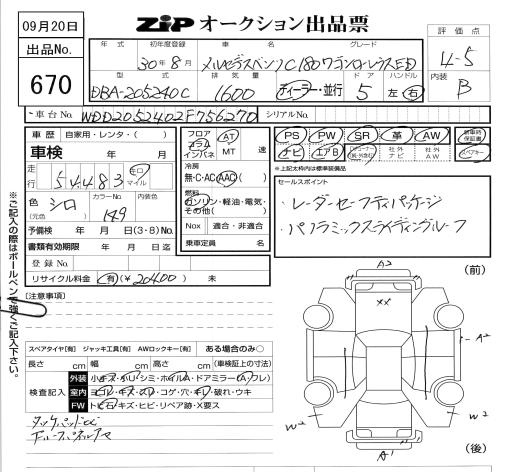 09月20日
ZIP オークション出品票
出品No.
670
年 式 初年度登録 車 名 グレード
30年8月 メルセデスベンツ C180ワゴン ローレウスED
型 式 排 気 量 ド ア ハンドル
DBA-205240C 1600 ディーラー・並行 5 左 右
評 価 点
4-5
内装
B
車台No. WDD2052402F756270 シリアルNo.
車 歴 自家用・レンタ・( )
車検 年 月
走行 54483 キロ マイル
色 シロ カラーNo. 149 内装色
(元色 )
予備検 年 月 日(3・8)No.
書類有効期限 年 月 日迄
登 録 No.
リサイクル料金 有(¥ 20400 ) 未
フロア コラム インパネ AT MT 速
冷房
無・C・AC・AAC( )
燃料
ガソリン・軽油・電気・
その他( )
Nox 適合・非適合
乗車定員 名
PS PW SR 革 AW 新車時保証書
ナビ エアB 社外ナビ 社外AW スペアキー
※上記太枠内は標準装備品
セールスポイント
・レーダーセーフティパッケージ
・パノラミックスライディングルーフ
※ご記入の際はボールペンで強くご記入下さい。
[注意事項]
スペアタイヤ[有] ジャッキ工具[有] AWロックキー[有] ある場合のみ○
長さ cm 幅 cm 高さ cm (車検証上の寸法)
検査記入
外装 小キズ・小U・シミ・ホイルA・ドアミラー(A・ワレ)
室内 ヨゴレ・キズ・スレ・コゲ・穴・キレ・破れ・ウキ
FW トビ石・キズ・ヒビ・リペア跡・X要ス
(前)
A2
XX
A2
W2
W2
A1
(後)